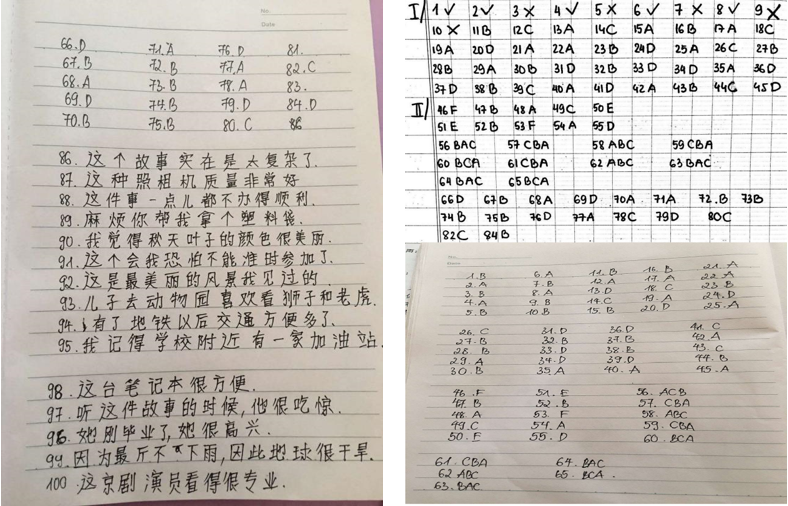 No.
Date
66.D 71.A 76.D 81.
67.B 72.B 77.A 82.C
68.A 73.B 78.A 83.
69.D 74.B 79.D 84.D
70.B 75.B 80.C 86
86.这个故事实在是太复杂了.
87.这种照相机质量非常好
88.这件事一点儿都不办得顺利.
89.麻烦你帮我拿个塑料袋.
90.我觉得秋天叶子的颜色很美丽.
91.这个会我恐怕不能准时参加了.
92.这是最美丽的风景我见过的.
93.儿子去动物园喜欢看狮子和老虎.
94.有了地铁以后交通方便多了.
95.我记得学校附近有一家加油站.
98.这台笔记本很方便.
97.听这件故事的时候,他很吃惊.
96.她刚毕业了,她很高兴.
99.因为最斤不下雨,因此地球很干旱.
100 这京剧演员看得很专业.
I/ 1✓ 2✓ 3✗ 4✓ 5✗ 6✓ 7✗ 8✓ 9✗
10✗ 11B 12C 13A 14C 15A 16B 17A 18C
19A 20D 21A 22A 23B 24D 25A 26C 27B
28B 29A 30B 31D 32B 33D 34D 35A 36D
37D 38B 39C 40A 41D 42A 43B 44C 45D
II/ 46F 47B 48A 49C 50E
51E 52B 53F 54A 55D
56 BAC 57 CBA 58 ABC 59 CBA
60 BCA 61 CBA 62 ABC 63 BAC
64 BAC 65 BCA
66D 67B 68A 69D 70A 71A 72.B 73B
74B 75B 76D 77A 78C 79D 80C
82C 84B
1.B 6.A 11.B 16.B 21.A
2.A 7.B 12.A 17.A 22.A
3.B 8.A 13.D 18.C 23.B
4.A 9.B 14.C 19.A 24.D
5.B 10.B 15.B 20.D 25.A
26.C 31.D 36.D 41.C
27.B 32.B 37.B 42.A
28.B 33.D 38.B 43.C
29.A 34.D 39.D 44.B
30.B 35.A 40.A 45.A
46.F 51.E 56.ACB
47.B 52.B 57.CBA
48.A 53.F 58.ABC
49.C 54.A 59.CBA
50.E 55.D 60.BCA
61.CBA 64.BAC
62.ABC 65.BCA
63.BAC